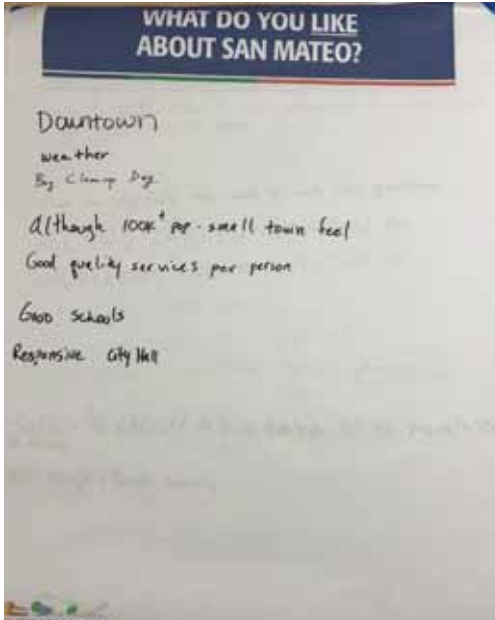 WHAT DO YOU LIKE
ABOUT SAN MATEO?
Downtown
weather
Day
Although 100K+ pop - small town feel
Good quality services per person
Good schools
Responsive City Hall